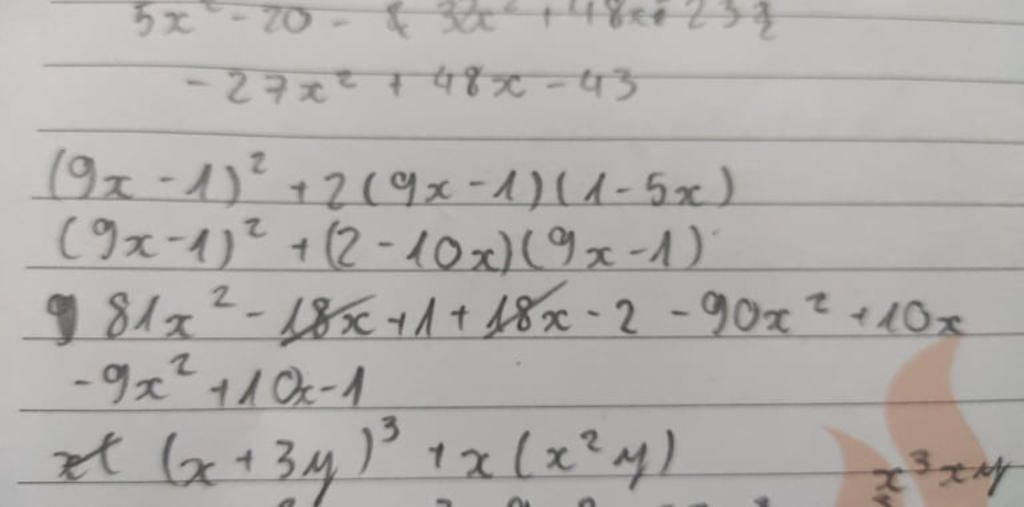 5x² - 20 - 32x² + 48x - 23
- 27x² + 48x - 43
(9x - 1)² + 2(9x - 1)(1 - 5x)
(9x - 1)² + (2 - 10x)(9x - 1)
81x² - 18x + 1 + 18x - 2 - 90x² + 10x
- 9x² + 10x - 1
(x + 3y)³ + x(x²y)
x³xy